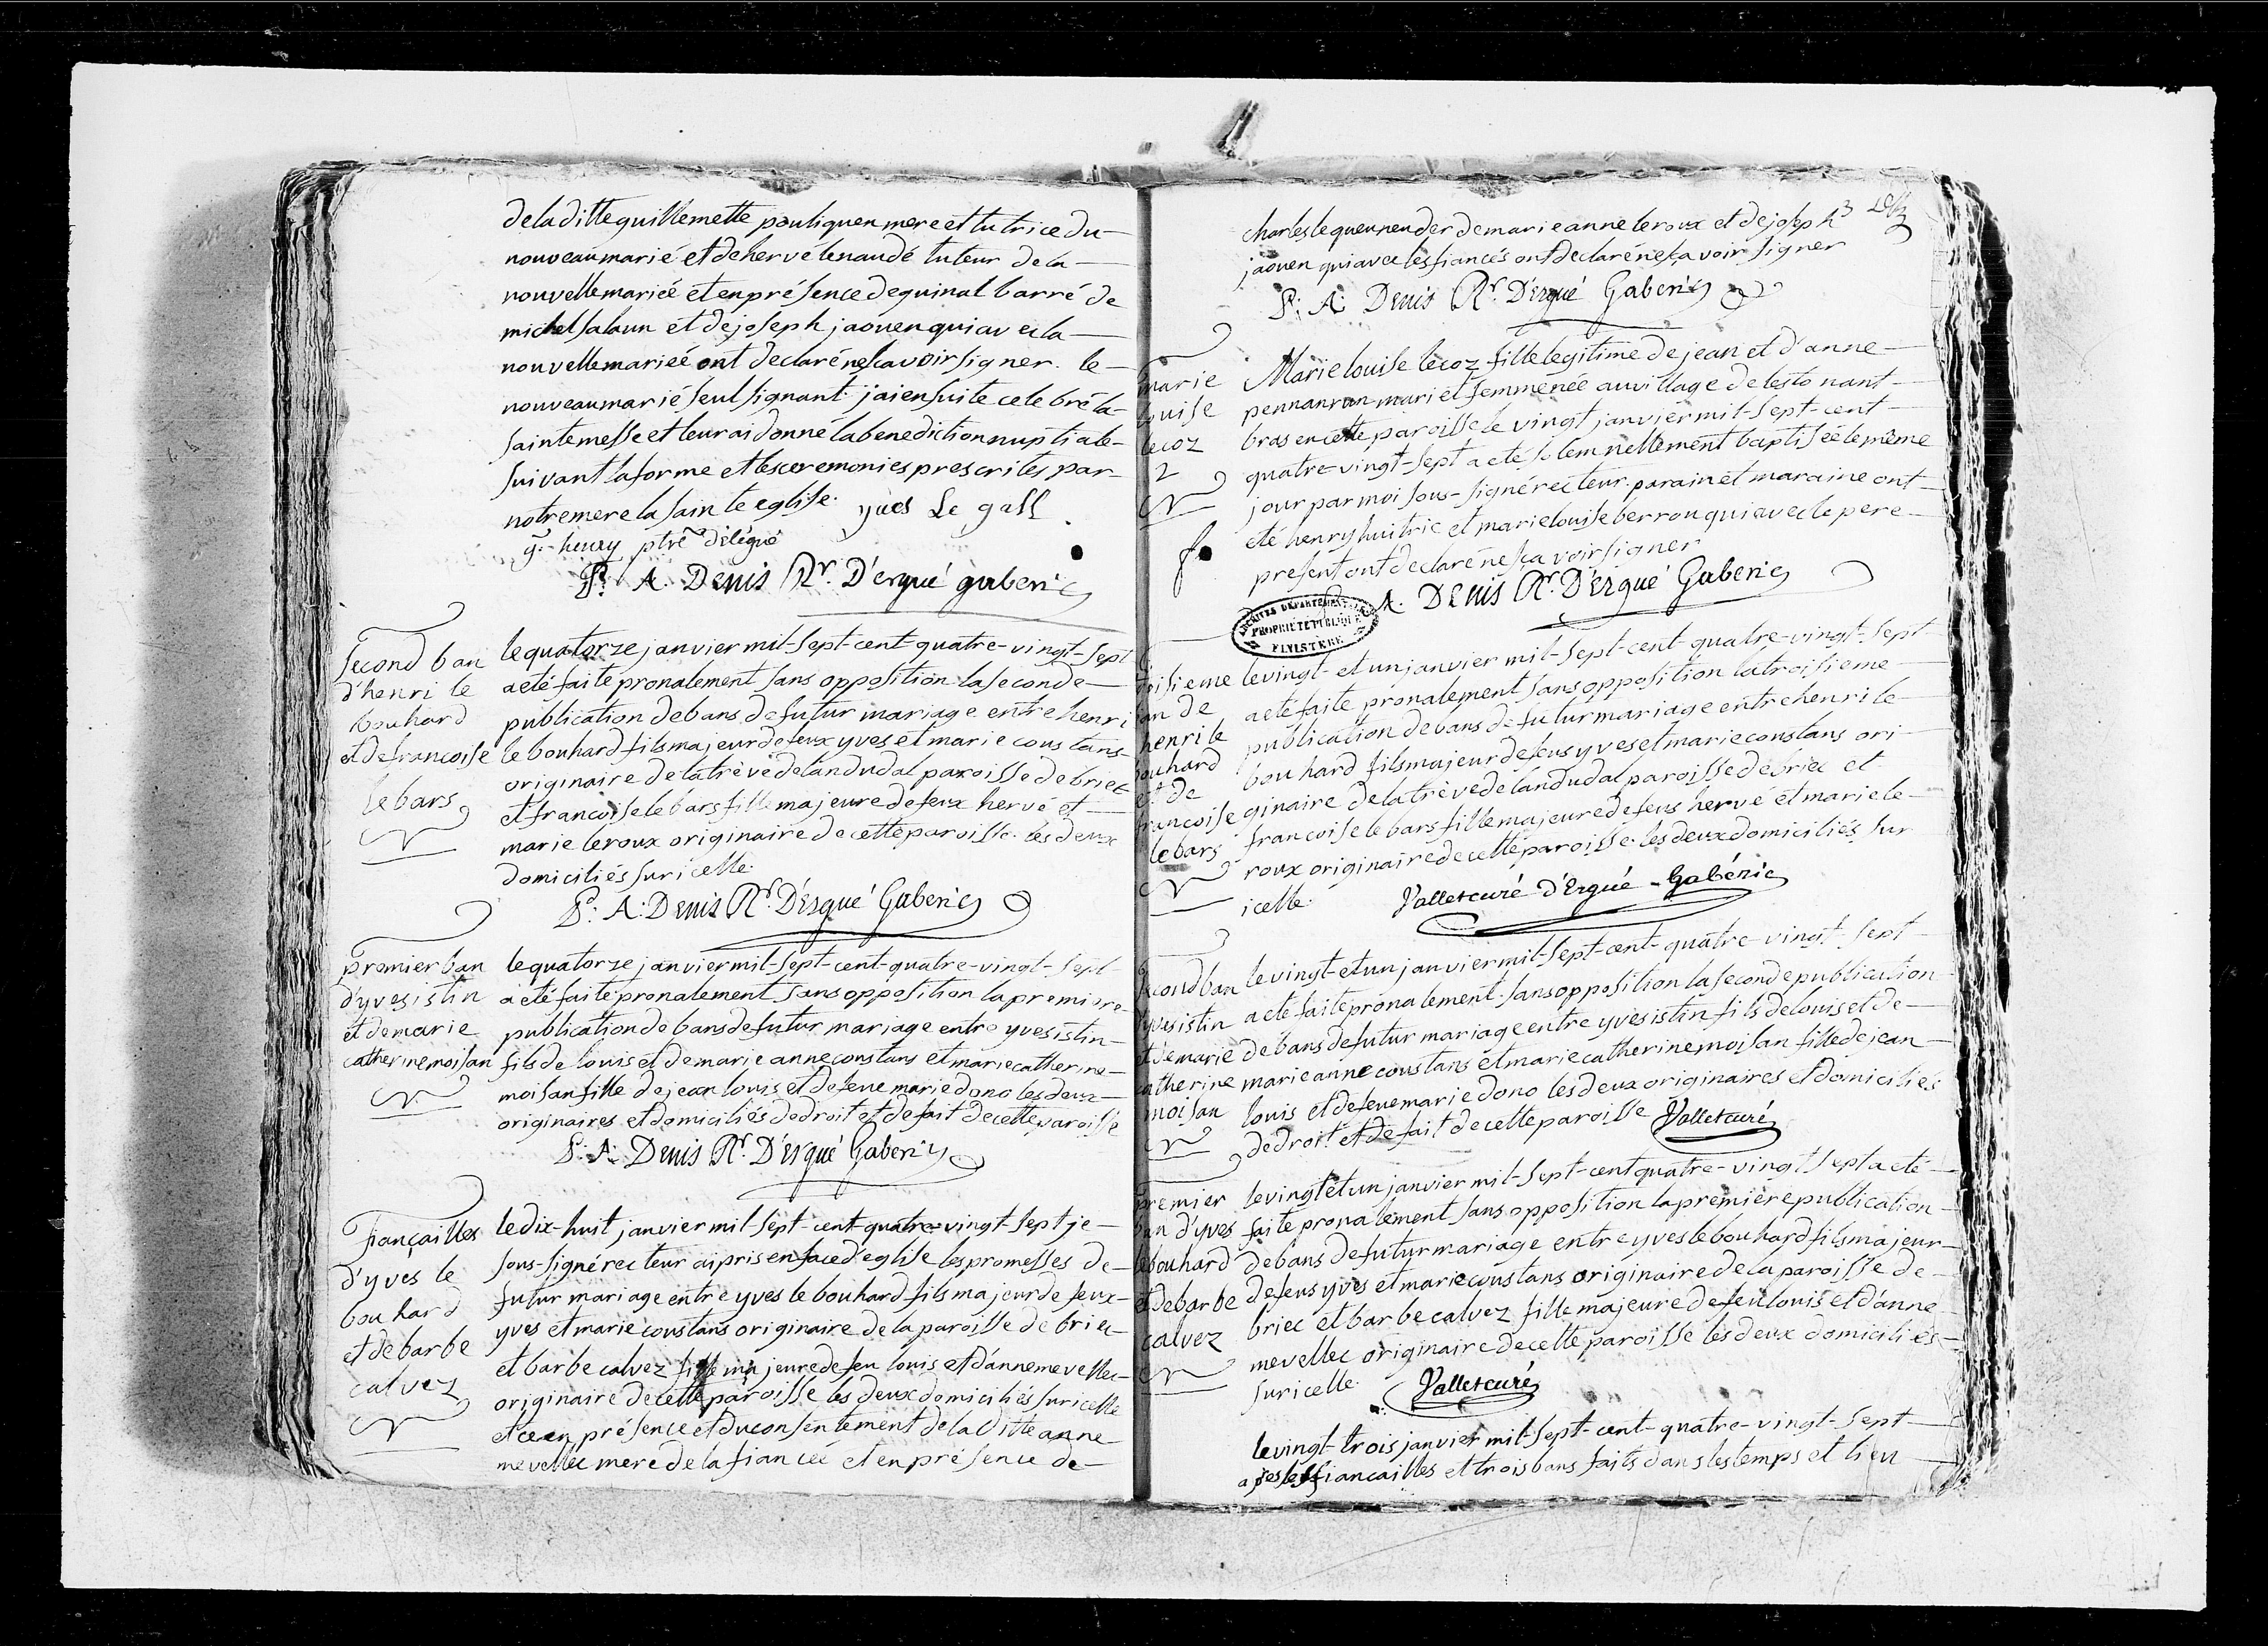 de la ditte guillemette pouliquen mere et tutrice du
nouveau marié et de hervé lenaudé tuteur de la
nouvelle mariée et en présence de guinal barré de
michel salaun et de joseph jaouen qui avec la
nouvelle mariée ont declaré ne scavoir signer. le
nouveau marié seul signant. j'ai ensuite celebré la
sainte messe et leur ai donné la benediction nuptiale
suivant la forme et les ceremonies prescrites par
notre mere la sainte eglise. yves Le gall
g. henry ptre délégué
P. A. Denis Rr. D'ergué gaberic
Second ban
d'henri le
bouhard
et de francoise
le bars
le quatorze janvier mil-sept-cent-quatre-vingt-sept
a eté faite pronalement sans opposition la seconde
publication de bans de futur mariage entre henri
le bouhard fils majeur de feux yves et marie coustans
originaire de la trève de landudal paroisse de briec
et francoise le bars fille majeure de feux hervé et
marie leroux originaire de cette paroisse. les deux
domiciliés sur icelle.
P: A: Denis Rr. D'Ergué Gaberic
premier ban
d'yves istin
et de marie
catherine moisan
le quatorze janvier mil-sept-cent-quatre-vingt-sept
a eté faite pronalement sans opposition la premiere
publication de bans de futur mariage entre yves istin
fils de louis et de marie anne coustans et marie catherine
moisan fille de jean louis et de feue marie dono les deux
originaires et domiciliés de droit et de fait de cette paroisse
P: A: Denis Rr. D'Ergué Gaberic
fiançailles
d'yves le
bouhard
et de barbe
calvez
le dix-huit janvier mil-sept-cent-quatre-vingt-sept je
sous-signé recteur ai pris en face d'eglise les promesses de
futur mariage entre yves le bouhard fils majeur de feux
yves et marie coustans originaire de la paroisse de briec
et barbe calvez fille majeure de feu louis et d'anne mevellec
originaire de cette paroisse les deux domiciliés sur icelle
et ce en présence et du consentement de la ditte anne
mevellec mere de la fiancée et en présence de
charles le queuneuder de marie anne leroux et de joseph
jaouen qui avec les fiancés ont declaré ne sçavoir signer
P: A: Denis Rr. D'Ergué Gaberic
marie
louise
lecoz
2
Marie louise lecoz fille legitime de jean et d'anne
pennanrun mari et femme née au village de lestonant
bras en cette paroisse le vingt janvier mil-sept-cent
quatre-vingt-sept a eté solemnellement baptisée le même
jour par moi sous-signé recteur. parain et maraine ont
été henry huitric et marie louise berrou qui avec le pere
present ont declaré ne sça voir signer
A. Denis Rr. D'Ergué Gaberic
ARCHIVES DÉPARTEMENTALES
PROPRIÉTÉ PUBLIQUE
FINISTÈRE
troisieme
ban de
henri le
bouhard
et de
francoise
le bars
le vingt-et un janvier mil-sept-cent-quatre-vingt-sept
a eté faite pronalement sans opposition la troisieme
publication de bans de futur mariage entre henri le
bouhard fils majeur de feus yves et marie coustans ori
ginaire de la trève de landudal paroisse de briec et
francoise le bars fille majeure de feus hervé et marie le
roux originaire de cette paroisse. les deux domiciliés sur
icelle. Vallet curé d'Ergué-Gabéric
second ban
yves istin
et de marie
catherine
moisan
le vingt-et un janvier mil-sept-cent-quatre-vingt sept
a eté faite pronalement sans opposition la seconde publication
de bans de futur mariage entre yves istin fils de louis et de
marie anne coustans et marie catherine moisan fille de jean
louis et de feue marie dono les deux originaires et domiciliés
de droit et de fait de cette paroisse Vallet curé
premier
ban d'yves
le bouhard
et de barbe
calvez
le vingt et un janvier mil-sept-cent quatre-vingt sept a eté
faite pronalement sans opposition la premiere publication
de bans de futur mariage entre yves le bouhard fils majeur
de feus yves et marie coustans originaire de la paroisse de
briec et barbe calvez fille majeure de feu louis et d'anne
mevellec originaire de cette paroisse les deux domiciliés
sur icelle. Vallet curé
le vingt-trois janvier mil-sept-cent-quatre-vingt-sept
apres les fiancailles et trois bans faits dans les temps et lieu